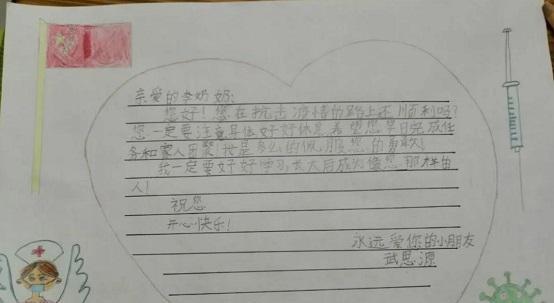 亲爱的李奶奶:
您好!您在抗击疫情的路上还顺利吗?
您一定要注意身体好好休息,希望您早日完成任
务和家人团聚!我是多么的佩服您的勇敢!
我一定要好好学习,长大后成为像您那样的
人!
祝您
开心快乐!
永远爱你的小朋友
武思源